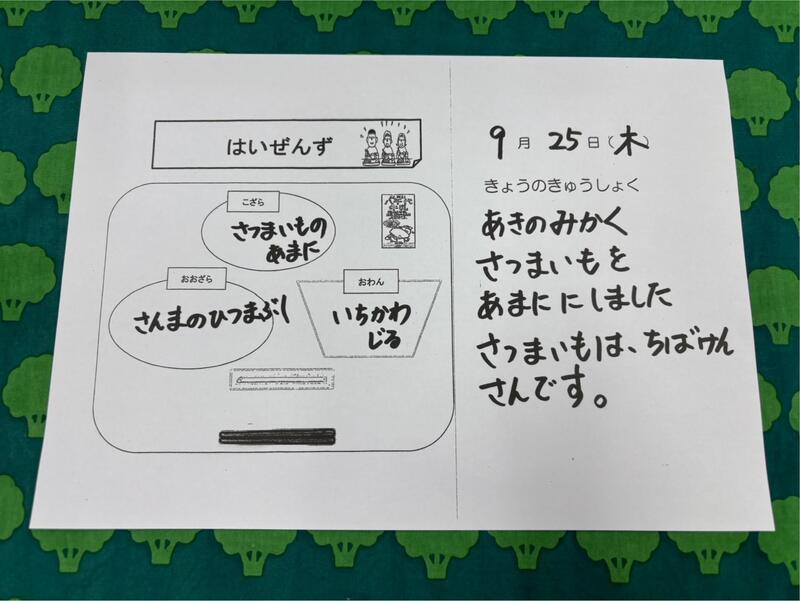 はいぜんず
こざら
さつまいもの
あまに
おおざら
さんまのひつまぶし
おわん
いちかわ
じる
9月25日(木)
きょうのきゅうしょく
あきのみかく
さつまいもを
あまににしました
さつまいもは、ちばけん
さんです。